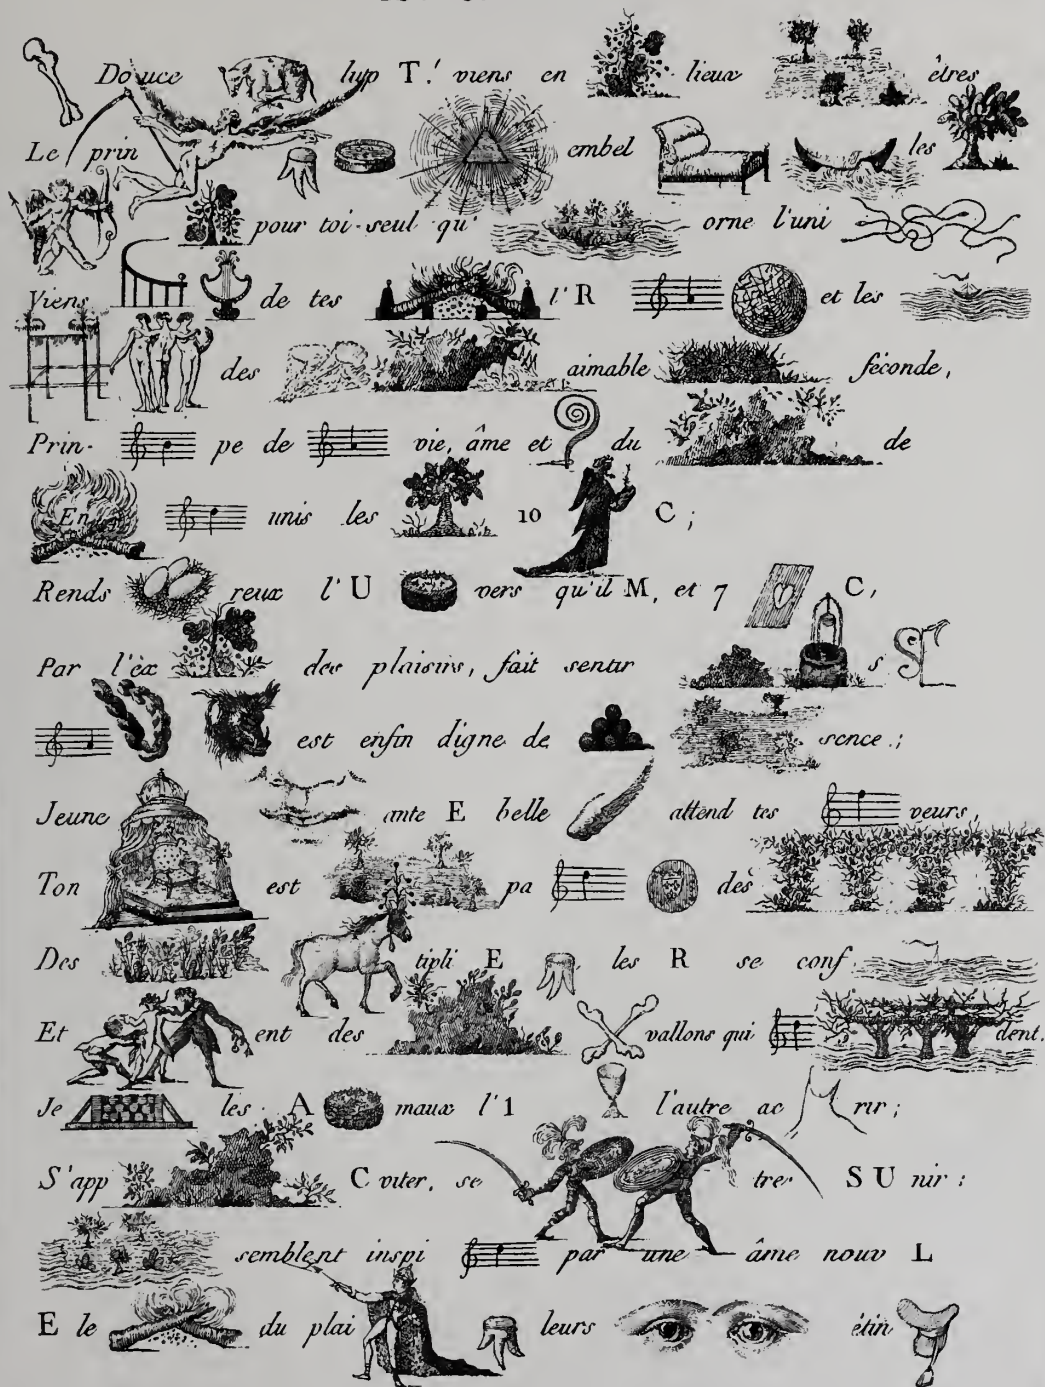 Douce lup T! viens en lieux êtres
Le prin embel les
pour toi-seul qu' orne l'uni
Viens de tes l'R et les
des aimable féconde,
Prin- pe de vie, âme et du de
En unis les 10 C;
Rends reux l'U vers qu'il M, et 7 C,
Par l'èx des plaisirs, fait sentir s
est enfin digne de sence;
Jeune ante E belle attend tes veurs,
Ton est pa des
Des tipli E les R se conf
Et ent des vallons qui dent.
Je les A maux l'1 l'autre ac rir;
S'app C viter, se tre S U nir:
semblent inspi par une âme nouv L
E le du plai leurs étin